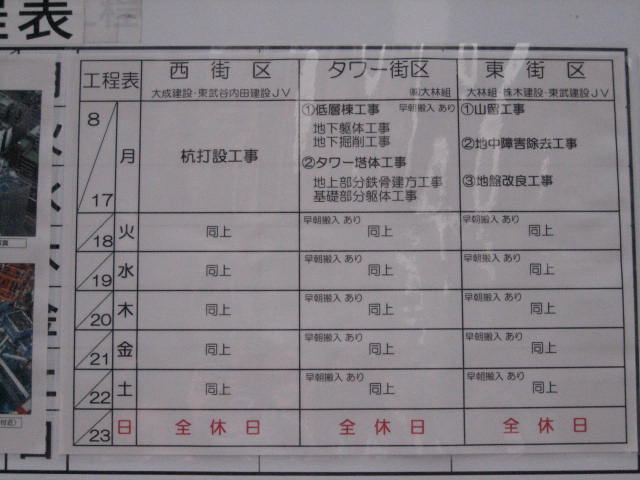 程表
工程
工程表 西街区 タワー街区 東街区
大成建設・東武谷内田建設JV ㈱大林組 大林組・株木建設・東武建設JV
8/17 月 杭打設工事
①低層棟工事 早朝搬入 あり
地下躯体工事
地下掘削工事
②タワー塔体工事
地上部分鉄骨建方工事
基礎部分躯体工事
①山留工事
②地中障害除去工事
③地盤改良工事
18 火 同上 早朝搬入 あり 同上 早朝搬入 あり 同上
19 水 同上 早朝搬入 あり 同上 早朝搬入 あり 同上
20 木 同上 早朝搬入 あり 同上 早朝搬入 あり 同上
21 金 同上 早朝搬入 あり 同上 早朝搬入 あり 同上
22 土 同上 早朝搬入 あり 同上 早朝搬入 あり 同上
23 日 全休日 全休日 全休日